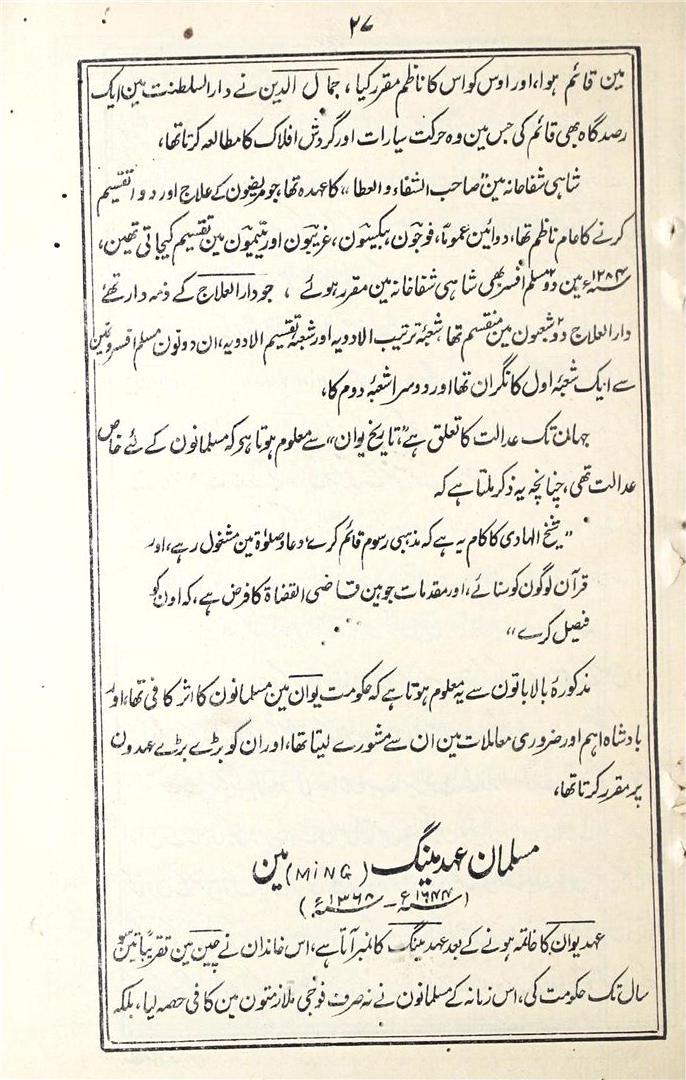 ۲۷
مین قائم ہوا، اور اوس کو اس کا ناظم مقرر کیا، جمال الدین نے دار السلطنت مین ایک
رصدگاہ بھی قائم کی جس مین وہ حرکت سیارات اور گردش افلاک کا مطالعہ کرتا تھا،
شاہی شفاخانہ مین "صاحب الشفاء والعطا" کا عہدہ تھا، جو مریضون کے علاج اور دوا تقسیم
کرنے کا عام ناظم تھا، دوائین عموماً، فوجون، بیکسون، غریبون اور یتیمون مین تقسیم کیجاتی تھین،
۱۲۸۴ء مین دو مسلم افسر بھی شاہی شفاخانہ مین مقرر ہوئے ، جو دار العلاج کے ذمہ دار تھے
دار العلاج دو شعبون مین منقسم تھا شعبۂ ترتیب الادویہ اور شعبۂ تقسیم الادویہ، ان دونون مسلم افسرون مین
سے ایک شعبۂ اول کا نگران تھا اور دوسرا شعبۂ دوم کا،
جہان تک عدالت کا تعلق ہے، "تاریخ یوان" سے معلوم ہوتا ہو کہ مسلمانون کے لئے خاص
عدالت تھی، چنانچہ یہ ذکر ملتا ہے کہ
"شیخ الہادی کا کام یہ ہے کہ مذہبی رسوم قائم کرے دعا و صلوٰۃ مین مشغول رہے، اور
قرآن لوگون کو سنائے، اور مقدمات جو ہین قاضی القضاۃ کا فرض ہے، کہ اون کو
فیصل کرے"
مذکورۂ بالا باتون سے یہ معلوم ہوتا ہے کہ حکومت یوان مین مسلمانون کا اثر کافی تھا، اور
بادشاہ اہم اور ضروری معاملات مین ان سے مشورے لیتا تھا، اور ان کو بڑے بڑے عہدون
پر مقرر کرتا تھا،
مسلمان عہد مینگ (MING) مین
(۱۶۴۴ء - ۱۳۶۸ء)
عہد یوان کا خاتمہ ہونے کے بعد عہد مینگ کا نمبر آتا ہے، اس خاندان نے چین مین تقریباً تین سو
سال تک حکومت کی، اس زمانہ کے مسلمانون نے نہ صرف فوجی ملازمتون مین کافی حصہ لیا، بلکہ